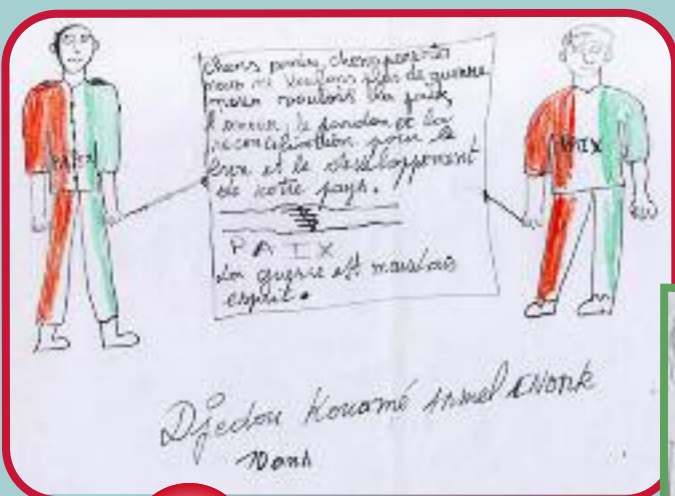 Chers parents, chers parents
nous ne voulons plus de guerre
nous voulons la paix,
l'amour, le pardon et la
reconciliation pour le
et le developpement
de notre pays.
PAIX
La guerre est mauvais
esprit.
PAIX
PAIX
Djedou Kouamé Armel
10 ans